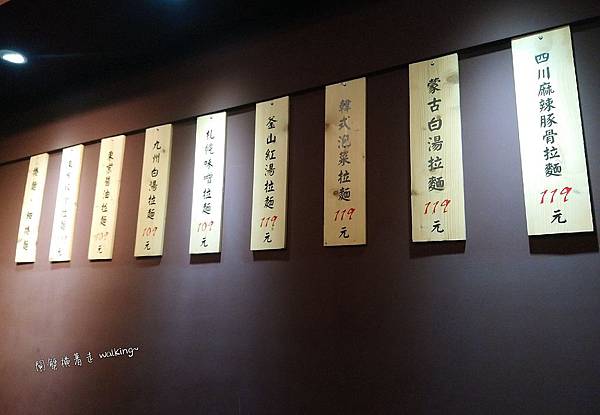 四川麻辣豚骨拉麵 119元
蒙古白湯拉麵 119元
韓式泡菜拉麵 119元
釜山紅湯拉麵 119元
札幌味噌拉麵 109元
九州白湯拉麵 109元
東京醬油拉麵 109元
拉麵
walking~